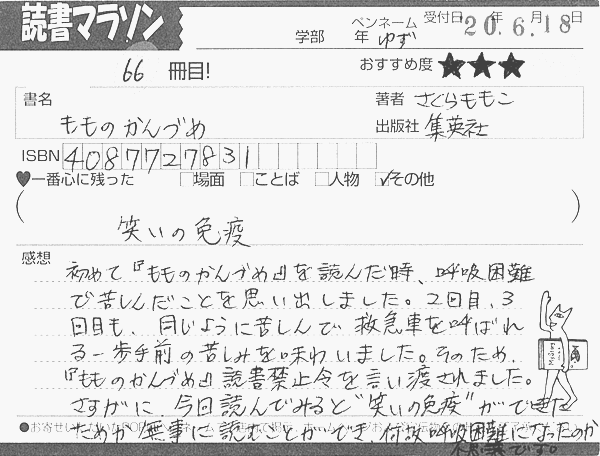 読書マラソン
学部 年 ペンネーム ゆず 受付日 20年6月18日
66 冊目!
おすすめ度 ★★★
書名 もものかんづめ
著者 さくらももこ
出版社 集英社
ISBN 4087727831
♥一番心に残った □場面 □ことば □人物 ☑その他
(笑いの免疫)
感想
初めて『もものかんづめ』を読んだ時、呼吸困難
で苦しんだことを思い出しました。2回目、3
回目も、同じように苦しんで救急車を呼ばれ
る一歩手前の苦しみを味わいました。そのため、
『もものかんづめ』読書禁止令を言い渡されました。
さすがに、今日読んでみると"笑いの免疫"ができた
ためか無事に読むことができ、何故呼吸困難になったのか
不思議です。
●お寄せいただいた